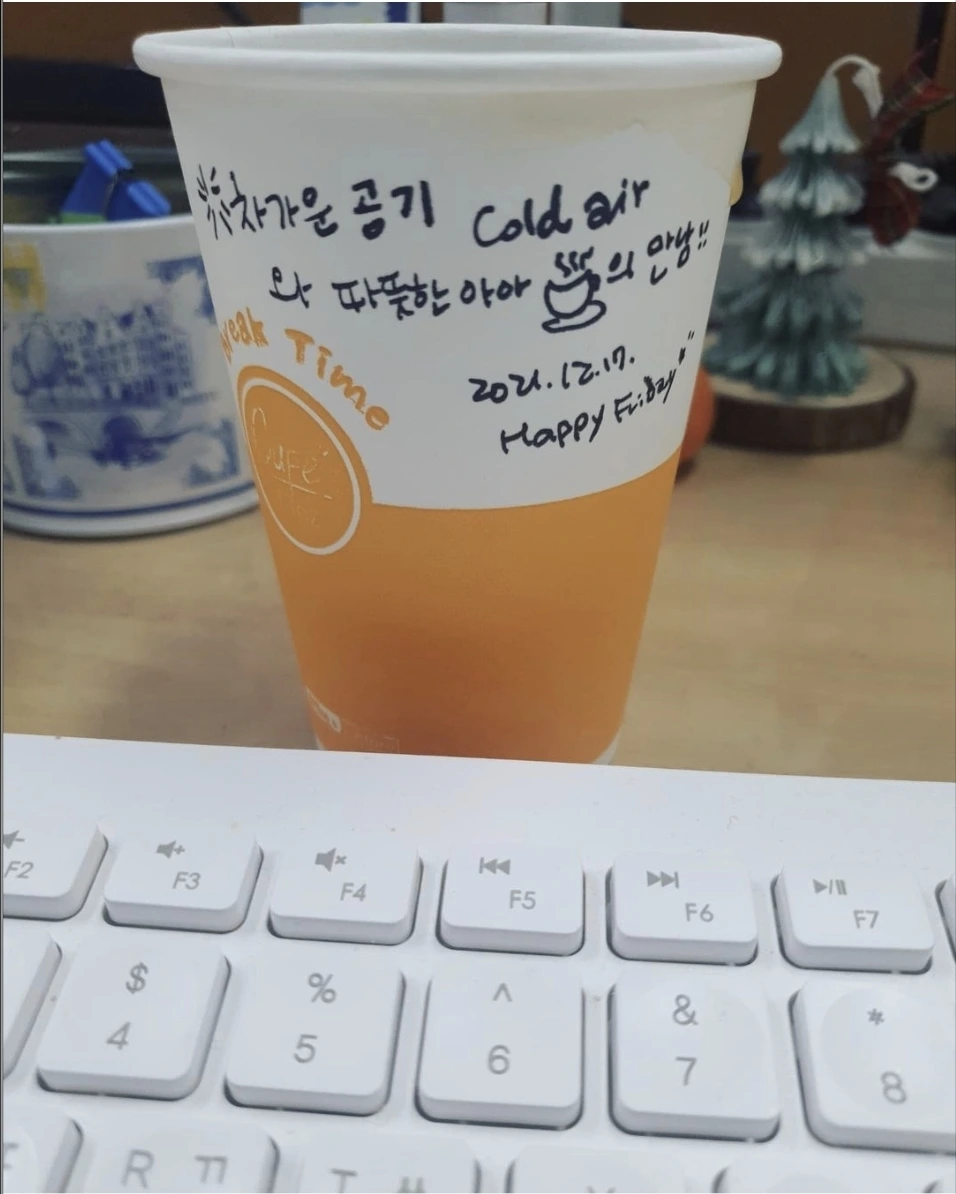 차가운 공기 Cold air
와 따뜻한 아아 의 만남!!
2021.12.17.
Happy Friday
Break Time
Café
F2
F3
F4
F5
F6
F7
$
4
%
5
^
6
&
7
*
8
R ㄲ